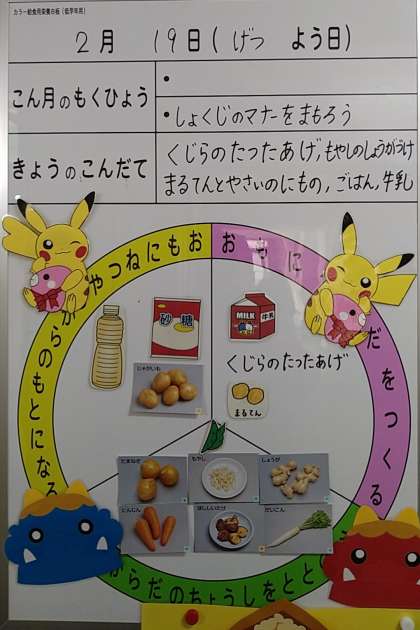 カラー給食用栄養白板(低学年用)
2月 19日(げつ よう日)
こん月のもくひょう
・
・しょくじのマナーをまもろう
きょうのこんだて
くじらのたつたあげ,もやしのしょうがづけ
まるてんとやさいのにもの,ごはん,牛乳
おもにねつや
おもに
だをつくる
らのもとになる
砂糖
MILK 牛乳
くじらのたつたあげ
じゃがいも
まるてん
たまねぎ
もやし
しょうが
にんじん
ほししいたけ
だいこん
からだのちょうしをとと